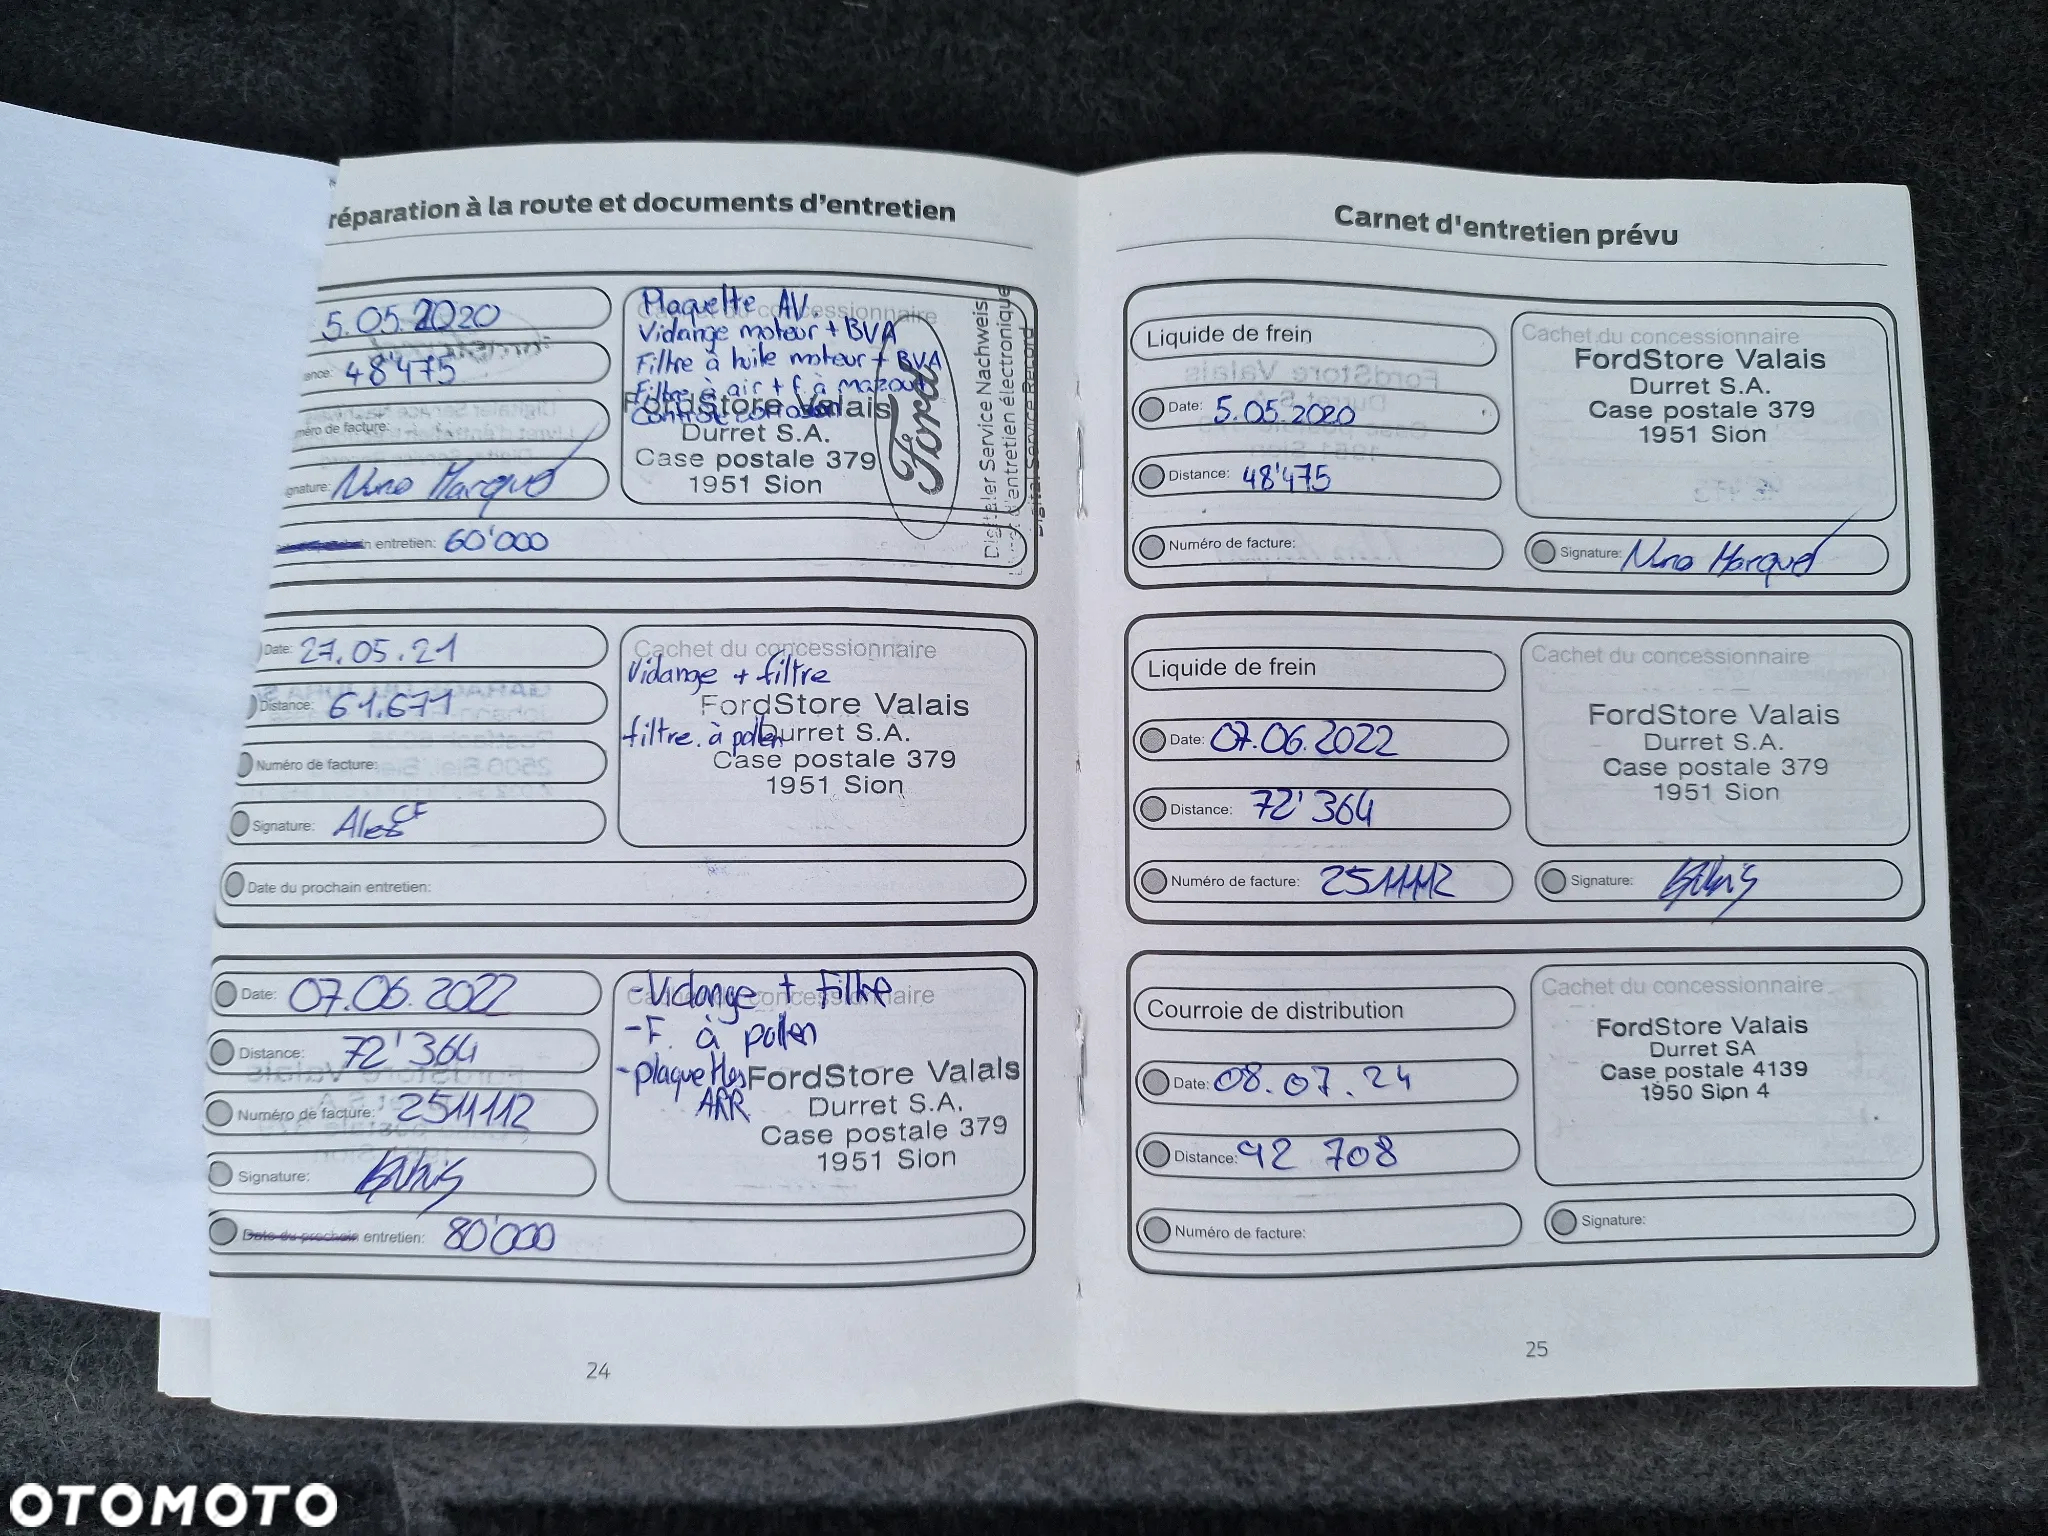 réparation à la route et documents d'entretien
5.05.2020
Plaquette AV.
Cachet du concessionnaire
Vidange moteur + BVA
ance: 48'475
Filtre à huile moteur + BVA
Filtre à air + f. à mazout
Controle corrosion
méro de facture:
FordStore Valais
Durret S.A.
Case postale 379
1951 Sion
Ford
Digitaler Service Nachweis
d'entretien électronique
Digital Service Record
gnature: Nuno Marques
n entretien: 60'000
Date: 27.05.21
Distance: 61.671
Numéro de facture:
Signature:
Cachet du concessionnaire
Vidange + filtre
FordStore Valais
filtre. à pollen
Durret S.A.
Case postale 379
1951 Sion
Date du prochain entretien:
Date: 07.06.2022
Distance: 72'364
Numéro de facture: 2511112
Signature:
Cachet du concessionnaire
-Vidange + Filtre
-F. à pollen
-plaquettes
ARR
FordStore Valais
Durret S.A.
Case postale 379
1951 Sion
Date du prochain entretien: 80'000
24
Carnet d'entretien prévu
Liquide de frein
Date: 5.05.2020
Distance: 48'475
Numéro de facture:
Cachet du concessionnaire
FordStore Valais
Durret S.A.
Case postale 379
1951 Sion
Signature: Nuno Marques
Liquide de frein
Date: 07.06.2022
Distance: 72'364
Numéro de facture: 2511112
Cachet du concessionnaire
FordStore Valais
Durret S.A.
Case postale 379
1951 Sion
Signature:
Courroie de distribution
Date: 08.07.24
Distance: 92 708
Numéro de facture:
Cachet du concessionnaire
FordStore Valais
Durret SA
Case postale 4139
1950 Sion 4
Signature:
25
OTOMOTO